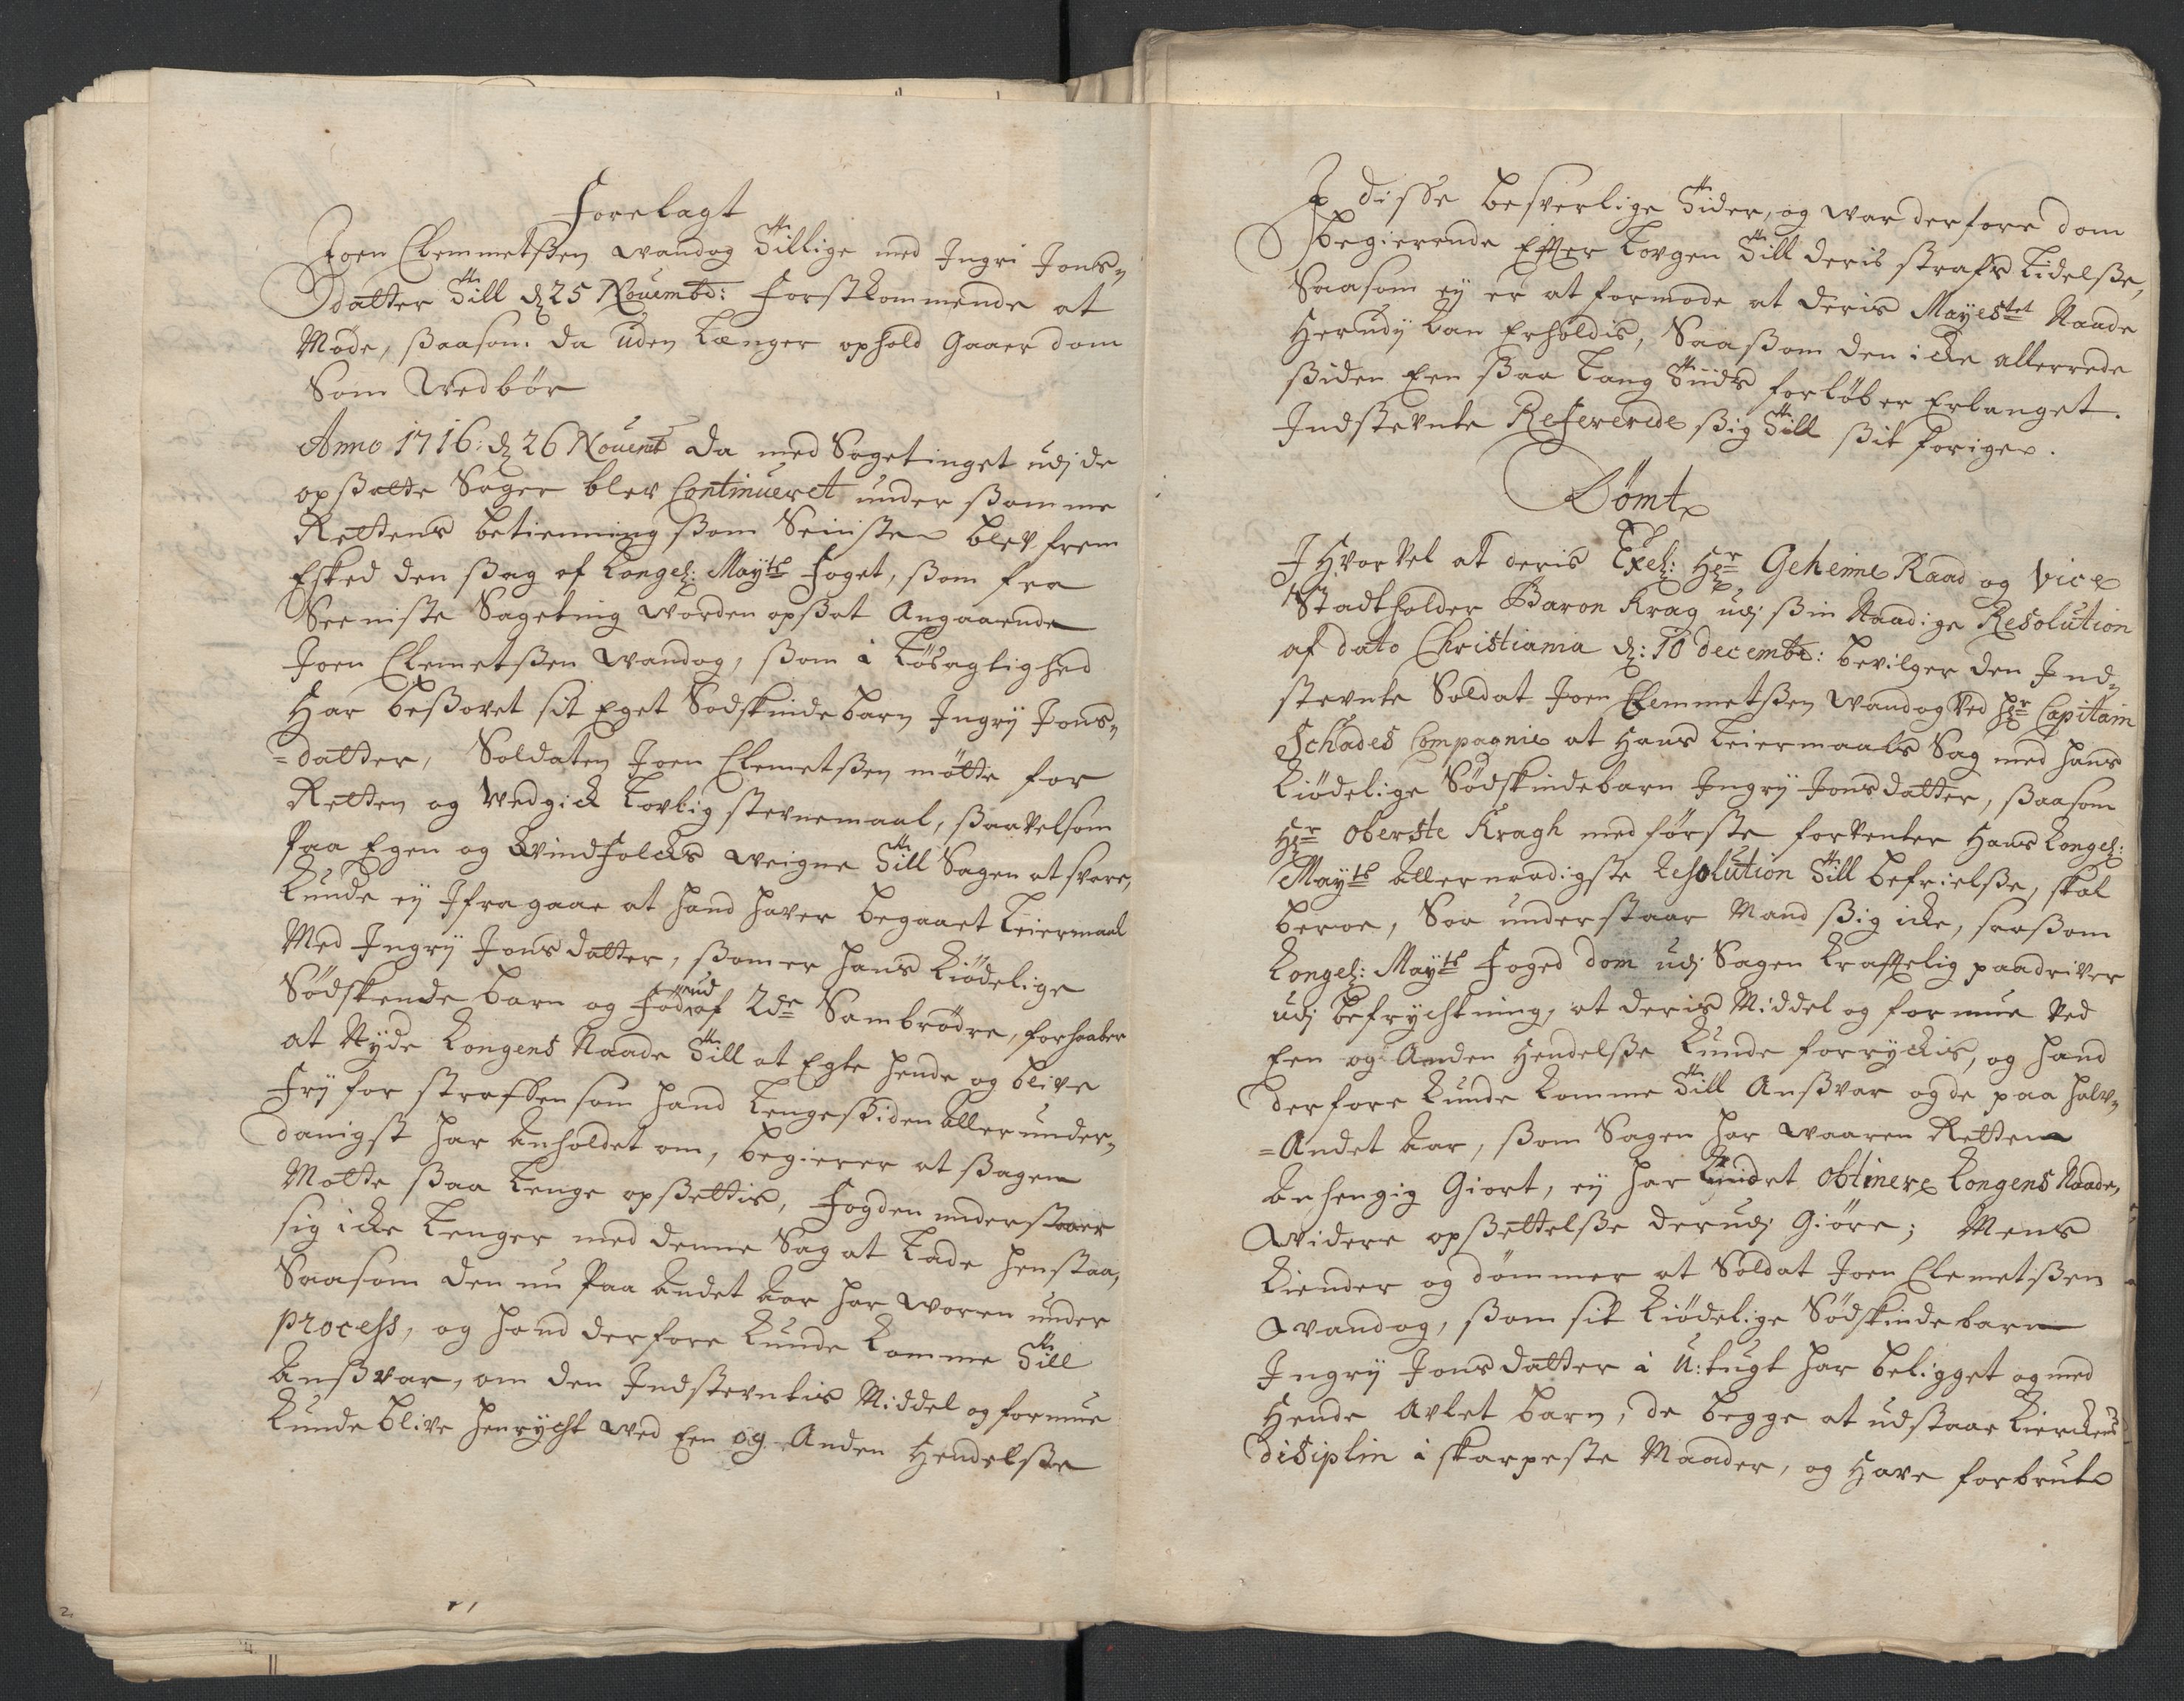 Forelagt
Joen Clemmetßen Wandog Tillige med Ingri Jons-
datter Till d: 25 Novembr: Førstkommende at
Møde, ßaasom da uden Længer ophold Gaaer dom
Som Vedbør
Anno 1716: d: 26 Novemb da med Sagetinget udj de
opßatte Sager blev Continueret under ßamme
Rettens betienning ßom Seiniste blev frem
Esked den ßag af Kongel: Mayts Foget, ßom fra
Seeniste Sageting worden opßat Angaaende
Joen Clemetßen Wandog, ßom i Løsagtighed
Har beßovet sit Eget Sødskindebarn Ingrij Jons-
=datter, Soldaten Joen Clemetßen møtte for
Retten og Vedgick Lovlig stevnemaal, ßaavelsom
Paa Egen og Qvindfolckes weigne Till Sagen at svare,
Kunde ej Ifragaae at hand haver begaaet Leiermaal
Med Ingrij Jonsdatter, ßom er hans Kiødelige
Sødskende barn og Fød ud af 2de Sambrødre, forhaaber
at Nyde Kongens Naade Till at Egte hende og blive
Frij for straffen som hand Lenge ßiden Aller under-
danigst har Anholdet om, begierer at ßagen
Motte ßaa Lenge opßettis, Fogden understaaer
sig icke Lenger med denne Sag at Lade henstaa,
Saasom den nu Paa Andet Aar har woren under
Process, og hand derfore Kunde Komme Till
Anßvar, om den Indstevntis Middel og formue
Kunde blive henrycht wed Een og Anden Hendelße
I disse besverlige Tider, og war derfore dom
begierende Efter Lovgen Till deris strafs Lidelße,
Saasom ej er at formode at deris Mayestet Naade
Herudij Kan Erholdis, Saaßom den icke allerrede
ßiden Een ßaa Lang Tiids forløb er Erlanget.
Indstevnte Refererede ßig Till ßit forige.
Dømt
IHvorvel at deris Exel: Hr Geheime Raad og Vice
Stadtholder Baron Krag udj ßin Naadige Resolution
af dato Christiania d: 10 decembr: bevilger den Ind-
stevnte Soldat Joen Clemmetßen Wandog Ved Hr Capitain
Schades Compagnie at Hans Leiermaals Sag med hans
Kiødelige Sødskindebarn Ingrij Jonsdatter, ßaasom
Hr Oberste Kragh med første forventer Hans Kongel:
Mayts Allernaadigste Resolution Till befrielße, skal
beroe, Saa understaar Mand ßig icke, saaßom
Kongel: Mayts Foged dom udj Sagen Krafftelig paadriver
udj befrychtning, at deris Middel og formue Ved
Een og Anden Hendelße Kunde forryckis, og hand
derfore Kunde Komme Till Anßvar og de paa halv-
=Andet Aar, ßom Sagen har waaren Retten
Anhengig Giort, ej har Kundet obtinere Kongens Naade,
Widere opßettelße derudj Giøre; Mens
Kiender og dømmer at Soldat Joen Clemetßen
Wandog, ßom sit Kiødelige Sødskindebarn
Ingrij Jonsdatter i U:tugt har beligget og med
Hende Avlet barn, de begge at udstaae Kierckens
disiplin i skarpeste Maader, og Have forbrut